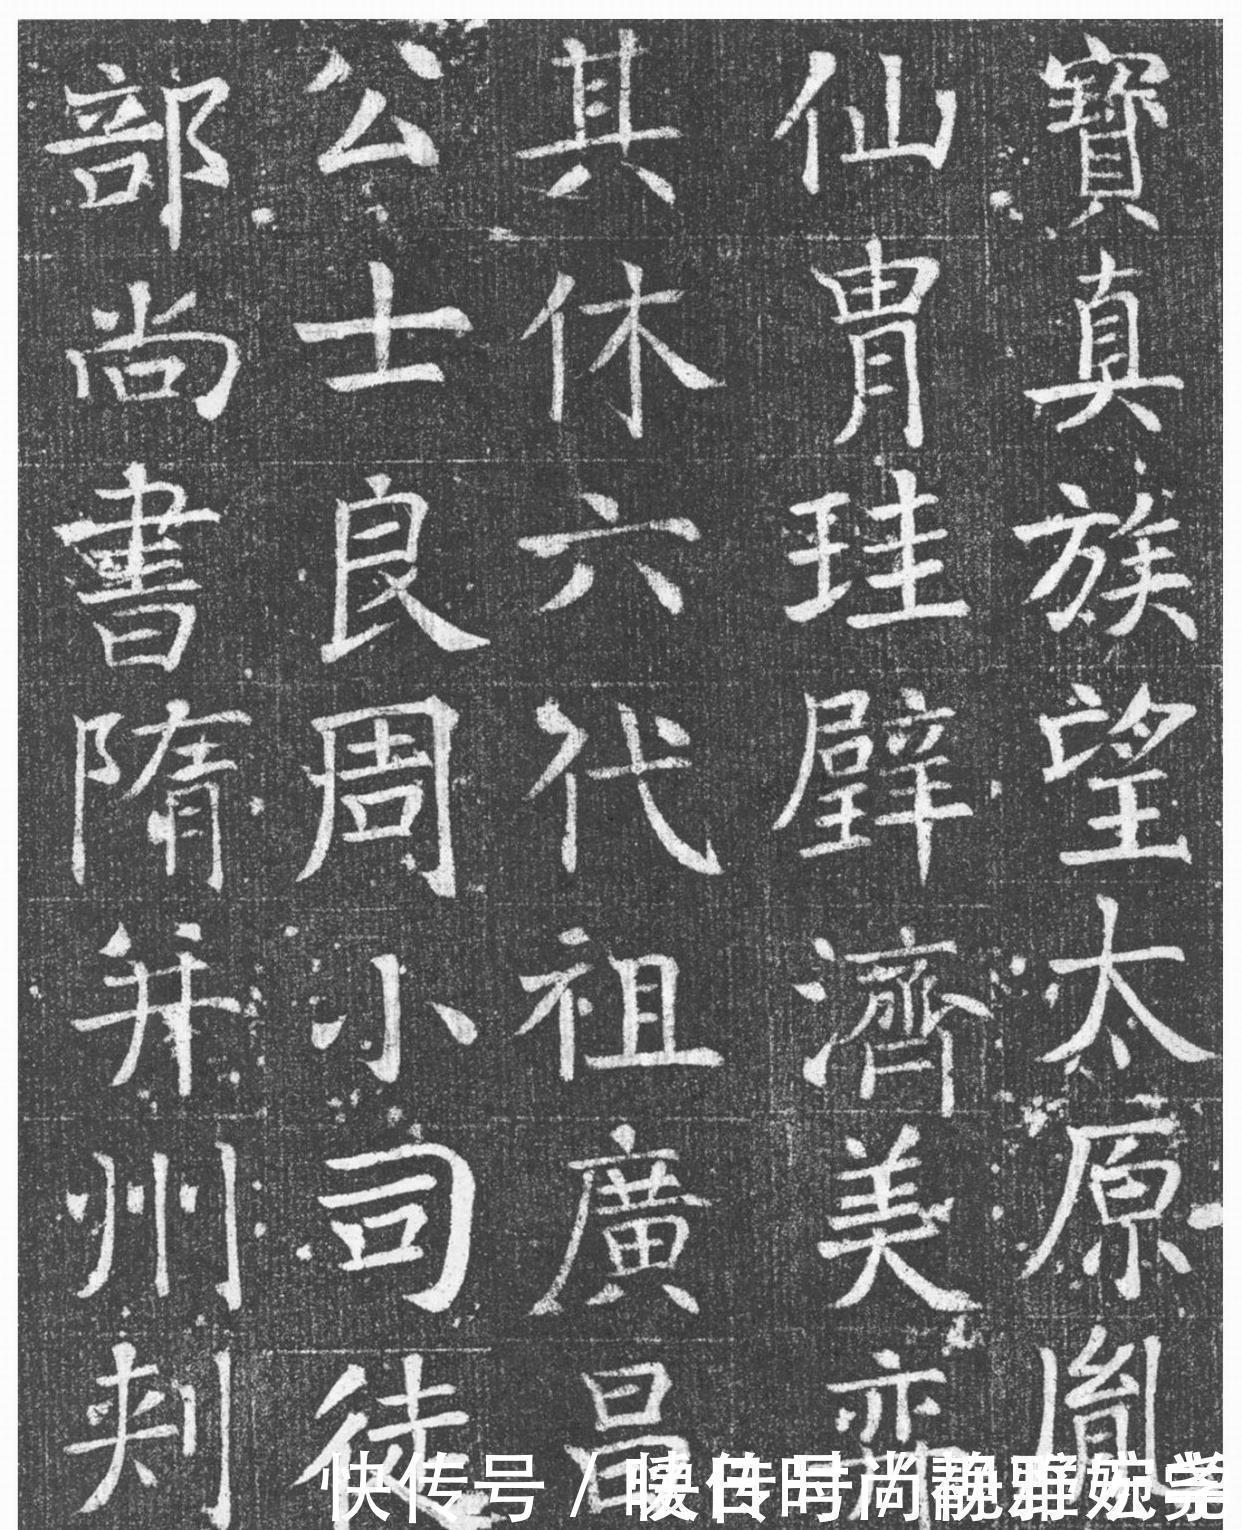 寶真族望太原胤
仙胄珪璧濟美弈
其休六代祖廣昌
公士良周小司徒
部尚書隋并州刺
快传号 /